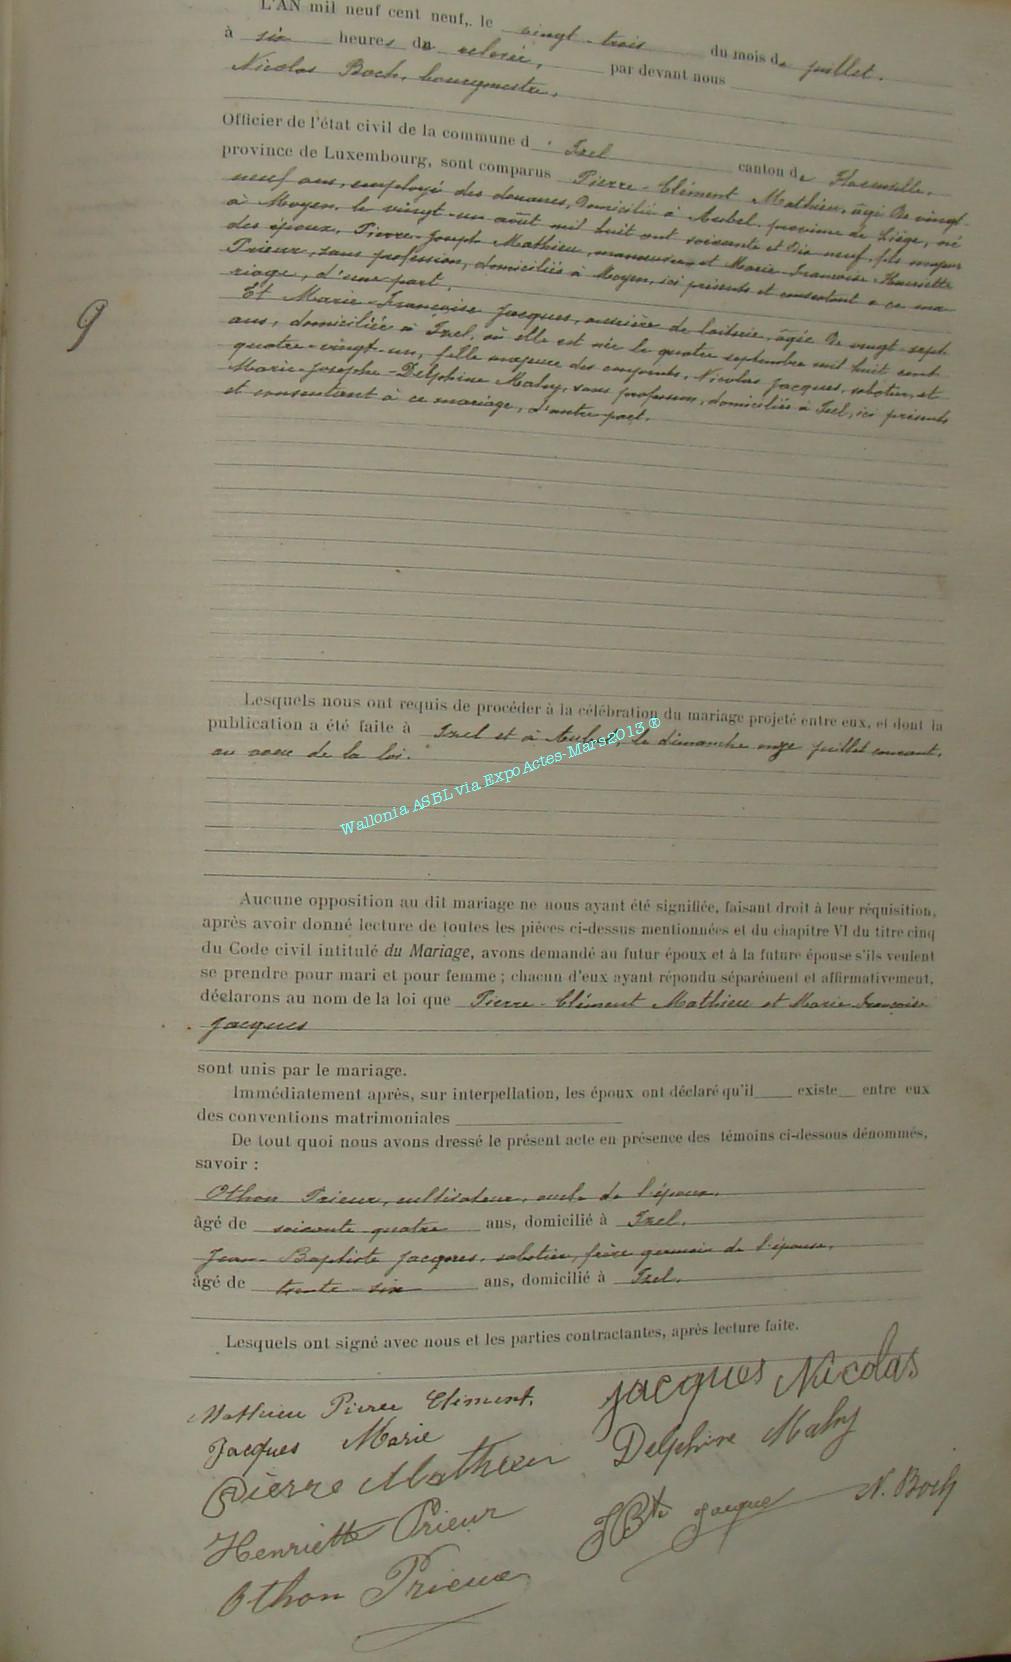 L'AN mil neuf cent neuf, le vingt-trois du mois de juillet.
à six heures du relevée, par devant nous
Nicolas Boch, bourgmestre,
Officier de l'état civil de la commune d' Izel canton de Florenville,
province de Luxembourg, sont comparus Pierre-Clément Mathieu, âgé de vingt-
neuf ans, employé des douanes, domicilié à Aubel, province de Liège, né
à Moyen, le vingt-un août mil huit cent soixante et dix-neuf, fils majeur
des époux, Pierre-Joseph Mathieu, manoeuvre et Marie-Françoise-Henriette
Prieur, sans profession, domiciliés à Moyen, ici présents et consentant à ce ma-
riage, d'une part.
Et Marie-Françoise Jacques, ouvrière de laiterie, âgée de vingt-sept
ans, domiciliée à Izel, où elle est née le quatre septembre mil huit cent
quatre-vingt-un, fille majeure des conjoints, Nicolas Jacques, sabotier, et
Marie-Josèphe-Delphine Mahy, sans profession, domiciliés à Izel, ici présents
et consentant à ce mariage, d'autre part.
9
Lesquels nous ont requis de procéder à la célébration du mariage projeté entre eux, et dont la
publication a été faite à Izel et à Aubel, le dimanche onze juillet courant,
au voeu de la loi.
Wallonia ASBL via ExpoActes-Mars2013 ®
Aucune opposition au dit mariage ne nous ayant été signifiée, faisant droit à leur réquisition,
après avoir donné lecture de toutes les pièces ci-dessus mentionnées et du chapitre VI du titre cinq
du Code civil intitulé du Mariage, avons demandé au futur époux et à la future épouse s'ils veulent
se prendre pour mari et pour femme ; chacun d'eux ayant répondu séparément et affirmativement,
déclarons au nom de la loi que Pierre-Clément Mathieu et Marie-Françoise
Jacques
sont unis par le mariage.
Immédiatement après, sur interpellation, les époux ont déclaré qu'il existe entre eux
des conventions matrimoniales
De tout quoi nous avons dressé le présent acte en présence des témoins ci-dessous dénommés,
savoir :
Othon Prieur, cultivateur, oncle de l'époux,
âgé de soixante-quatre ans, domicilié à Izel.
Jean-Baptiste Jacques, sabotier, frère germain de l'épouse,
âgé de trente-six ans, domicilié à Izel.
Lesquels ont signé avec nous et les parties contractantes, après lecture faite.
Mathieu Pierre Clément. Jacques Nicolas
Jacques Marie Delphine Mahy
Pierre Mathieu
Henriette Prieur JBte Jacques N. Boch
Othon Prieur